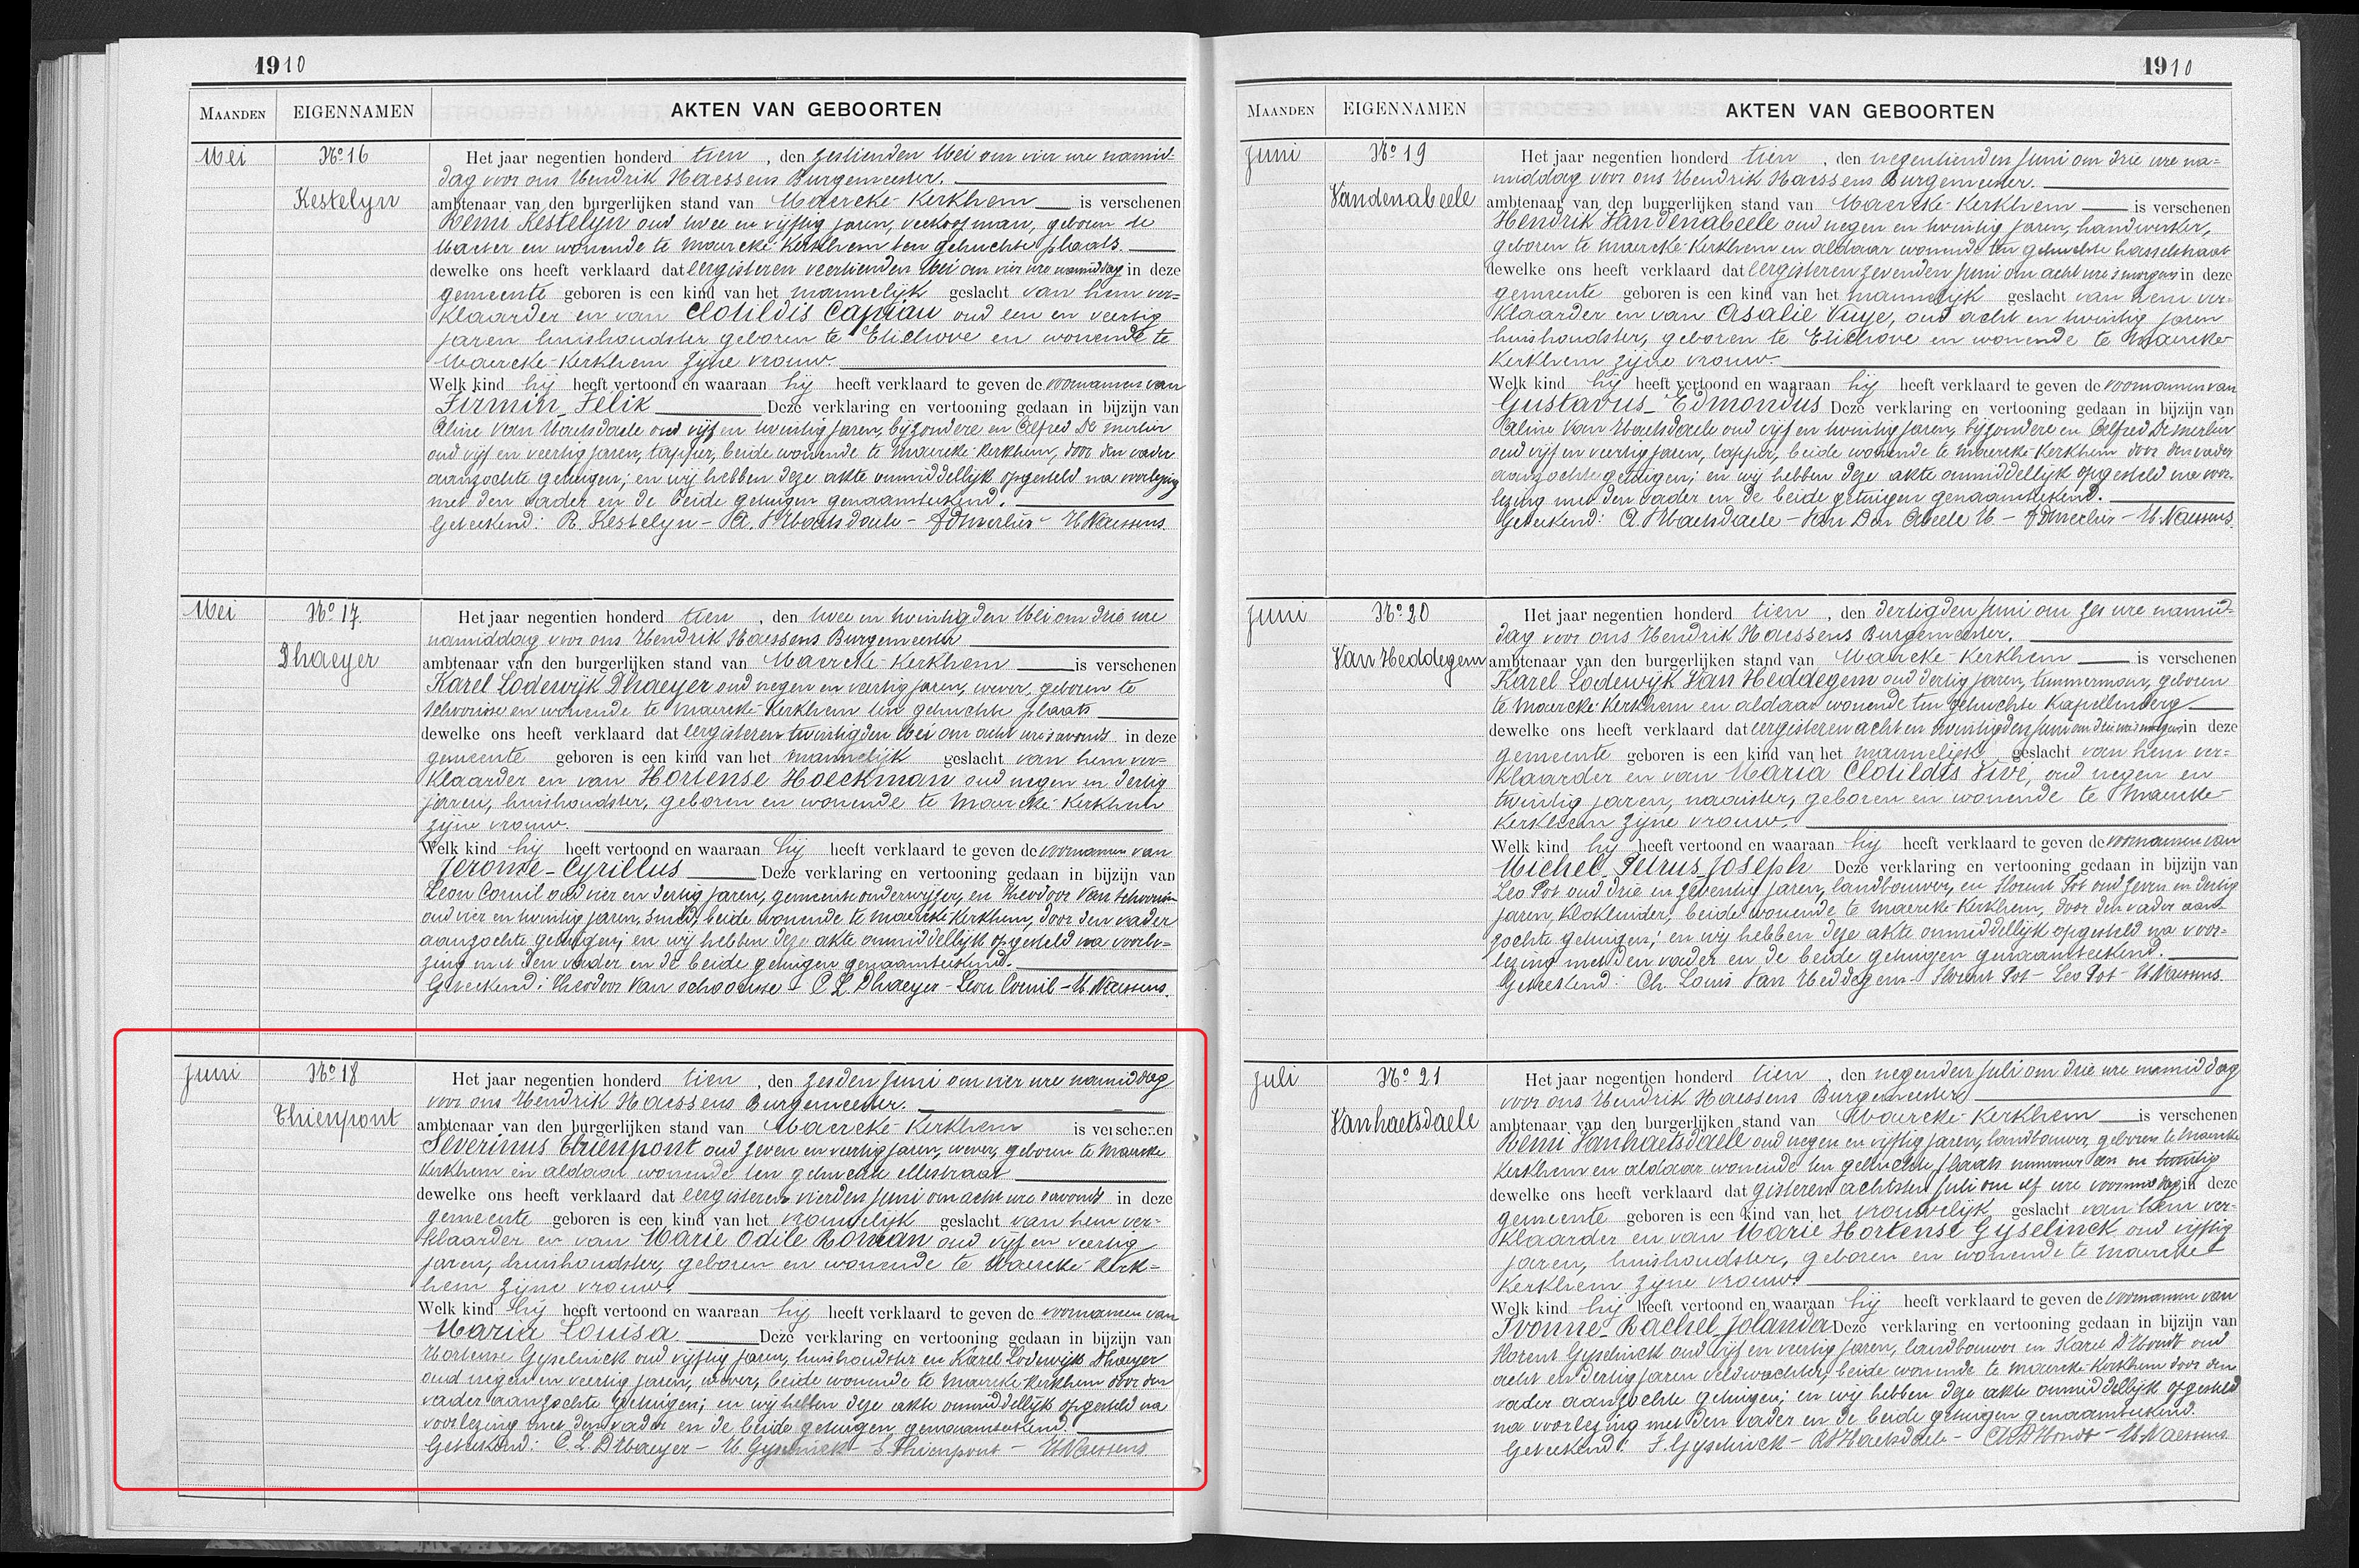 1910
MAANDEN EIGENNAMEN AKTEN VAN GEBOORTEN
Mei No 16 Het jaar negentien honderd tien, den zestienden Mei om vier ure namid-
dag voor ons Hendrik Naessens Burgemeester.
Kestelyn ambtenaar van den burgerlijken stand van Maercke-Kerkhem is verschenen
Remi Kestelyn oud twee en vijftig jaren, veekoopman, geboren te
Mater en wonende te Maercke-Kerkhem ten gehuchte plaats.
dewelke ons heeft verklaard dat eergisteren veertienden Mei om vier ure namiddag in deze
gemeente geboren is een kind van het mannelijk geslacht van hem ver-
klaarder en van Clotildis Capiau oud een en veertig
jaren huishoudster geboren te Etichove en wonende te
Maercke-Kerkhem zyne vrouw.
Welk kind hij heeft vertoond en waaraan hij heeft verklaard te geven de voornamen van
Firmin Felix Deze verklaring en vertooning gedaan in bijzijn van
Aline Van Haetsdaele oud vijf en twintig jaren, bijzondere en Alfred De Merlier
oud vijf en veertig jaren, tapper, beide wonende te Maercke-Kerkhem, door den vader
aanzochte getuigen; en wij hebben deze akte onmiddellijk opgesteld na voorlezing
met den vader en de beide getuigen genaamteekend.
Geteekend: R. Kestelyn - A. VHaetsdaele - ADmerlier - H Naessens.
Mei No 17 Het jaar negentien honderd tien, den twee en twintigden Mei om drie ure
namiddag voor ons Hendrik Naessens Burgemeester
Dhaeyer ambtenaar van den burgerlijken stand van Maercke-Kerkhem is verschenen
Karel Lodewijk Dhaeyer oud negen en veertig jaren, wever, geboren te
Schoorisse en wonende te Maercke-Kerkhem ten gehuchte plaats
dewelke ons heeft verklaard dat eergisteren twintigden Mei om acht ure s'avonds in deze
gemeente geboren is een kind van het mannelijk geslacht van hem ver-
klaarder en van Hortense Hoeckman oud negen en dertig
jaren, huishoudster, geboren en wonende te Maercke-Kerkhem
zijne vrouw.
Welk kind hij heeft vertoond en waaraan hij heeft verklaard te geven de voornamen van
Jerome-Cyrillus Deze verklaring en vertooning gedaan in bijzijn van
Leon Cornil oud vier en dertig jaren, gemeente onderwijzer, en Theodoor Van Schoorisse
oud vier en twintig jaren, smid, beide wonende te Maercke Kerkhem, door den vader
aanzochte getuigen; en wij hebben deze akte onmiddellijk opgesteld na voorle-
zing met den vader en de beide getuigen genaamteekend.
Geteekend: Theodoor Van Schoorisse - C L Dhaeyer - Leon Cornil - H Naessens.
Juni No 18 Het jaar negentien honderd tien, den zesden Juni om vier ure namiddag
voor ons Hendrik Naessens Burgemeester.
Thienpont ambtenaar van den burgerlijken stand van Maercke-Kerkhem is verschenen
Severinus Thienpont oud zeven en veertig jaren, wever, geboren te Maercke
Kerkhem en aldaar wonende ten gehuchte ellestraat
dewelke ons heeft verklaard dat eergisteren vierden Juni om acht ure s'avonds in deze
gemeente geboren is een kind van het vrouwelijk geslacht van hem ver-
klaarder en van Marie Odile Roman oud vijf en veertig
jaren, huishoudster, geboren en wonende te Maercke-Kerk-
hem zijne vrouw.
Welk kind hij heeft vertoond en waaraan hij heeft verklaard te geven de voornamen van
Maria Louisa Deze verklaring en vertooning gedaan in bijzijn van
Hortense Gyselinck oud vijftig jaren, huishoudster en Karel Lodewijk Dhaeyer
oud negen en veertig jaren, wever, beide wonende te Maercke Kerkhem door den
vader aanzochte getuigen; en wij hebben deze akte onmiddellijk opgesteld na
voorlezing met den vader en de beide getuigen genaamteekend.
Geteekend: C. L. DHaeyer - H Gyselinck - S Thienpont - H Naessens.
1910
MAANDEN EIGENNAMEN AKTEN VAN GEBOORTEN
Juni No 19 Het jaar negentien honderd tien, den negentienden Juni om drie ure na-
middag voor ons Hendrik Naessens Burgemeester.
Vandenabeele ambtenaar van den burgerlijken stand van Maercke-Kerkhem is verschenen
Hendrik Vandenabeele oud negen en twintig jaren, handwerker,
geboren te Maercke-Kerkhem en aldaar wonende ten gehuchte hasselstraat
dewelke ons heeft verklaard dat eergisteren zevenden Juni om acht ure s'morgens in deze
gemeente geboren is een kind van het mannelijk geslacht van hem ver-
klaarder en van Osalie Vuye, oud acht en twintig jaren
huishoudster, geboren te Etichove en wonende te Maercke
Kerkhem zijne vrouw.
Welk kind hij heeft vertoond en waaraan hij heeft verklaard te geven de voornamen van
Gustavus-Edmondus Deze verklaring en vertooning gedaan in bijzijn van
Aline Van Haetsdaele oud vijf en twintig jaren, bijzondere en Alfred De Merlier
oud vijf en veertig jaren, tapper, beide wonende te Maercke-Kerkhem door den vader
aanzochte getuigen; en wij hebben deze akte onmiddellijk opgesteld na voor-
lezing met den vader en de beide getuigen genaamteekend.
Geteekend: A VHaetsdaele - Van Den Abeele H - ADmerlier - H. Naessens.
Juni No 20 Het jaar negentien honderd tien, den dertigden Juni om zes ure namid-
dag voor ons Hendrik Naessens Burgemeester.
Van Heddegem ambtenaar van den burgerlijken stand van Maercke-Kerkhem is verschenen
Karel Lodewijk Van Heddegem oud dertig jaren, timmerman, geboren
te Maercke Kerkhem en aldaar wonende ten gehuchte Kapellenberg
dewelke ons heeft verklaard dat eergisteren acht en twintigden Juni om drie ure s'morgens in deze
gemeente geboren is een kind van het mannelijk geslacht van hem ver-
klaarder en van Maria Clotildis Vivé, oud negen en
twintig jaren, naaister, geboren en wonende te Maercke-
Kerkhem zijne vrouw.
Welk kind hij heeft vertoond en waaraan hij heeft verklaard te geven de voornamen van
Michel Petrus Joseph Deze verklaring en vertooning gedaan in bijzijn van
Leo Pot oud drie en zeventig jaren, landbouwer, en Florent Pot oud zeven en dertig
jaren, klokluider, beide wonende te Maercke-Kerkhem, door den vader aan-
zochte getuigen; en wij hebben deze akte onmiddellijk opgesteld na voor-
lezing met den vader en de beide getuigen genaamteekend.
Geteekend: Ch Louis Van Heddegem - Florent Pot - Leo Pot - H Naessens.
Juli No 21 Het jaar negentien honderd tien, den negenden Juli om drie ure namiddag
voor ons Hendrik Naessens Burgemeester
Vanhaetsdaele ambtenaar van den burgerlijken stand van Maercke-Kerkhem is verschenen
Remi Vanhaetsdaele oud negen en vijftig jaren, landbouwer, geboren te Maercke
Kerkhem en aldaar wonende ten gehuchte plaats nummer een en twintig
dewelke ons heeft verklaard dat gisteren achtsten Juli om elf ure voormiddag in deze
gemeente geboren is een kind van het vrouwelijk geslacht van hem ver-
klaarder en van Marie Hortense Gyselinck oud vijftig
jaren, huishoudster, geboren en wonende te Maercke
Kerkhem zyne vrouw.
Welk kind hij heeft vertoond en waaraan hij heeft verklaard te geven de voornamen van
Ivonne-Rachel-Jolanda Deze verklaring en vertooning gedaan in bijzijn van
Florent Gyselinck oud vijf en veertig jaren, landbouwer en Karel D'Hondt oud
acht en dertig jaren veldwachter, beide wonende te Maercke-Kerkhem door den
vader aanzochte getuigen; en wij hebben deze akte onmiddellijk opgesteld
na voorlezing met den vader en de beide getuigen genaamteekend.
Geteekend: F. Gyselinck - RVHaetsdaele - C D'Hondt - H. Naessens